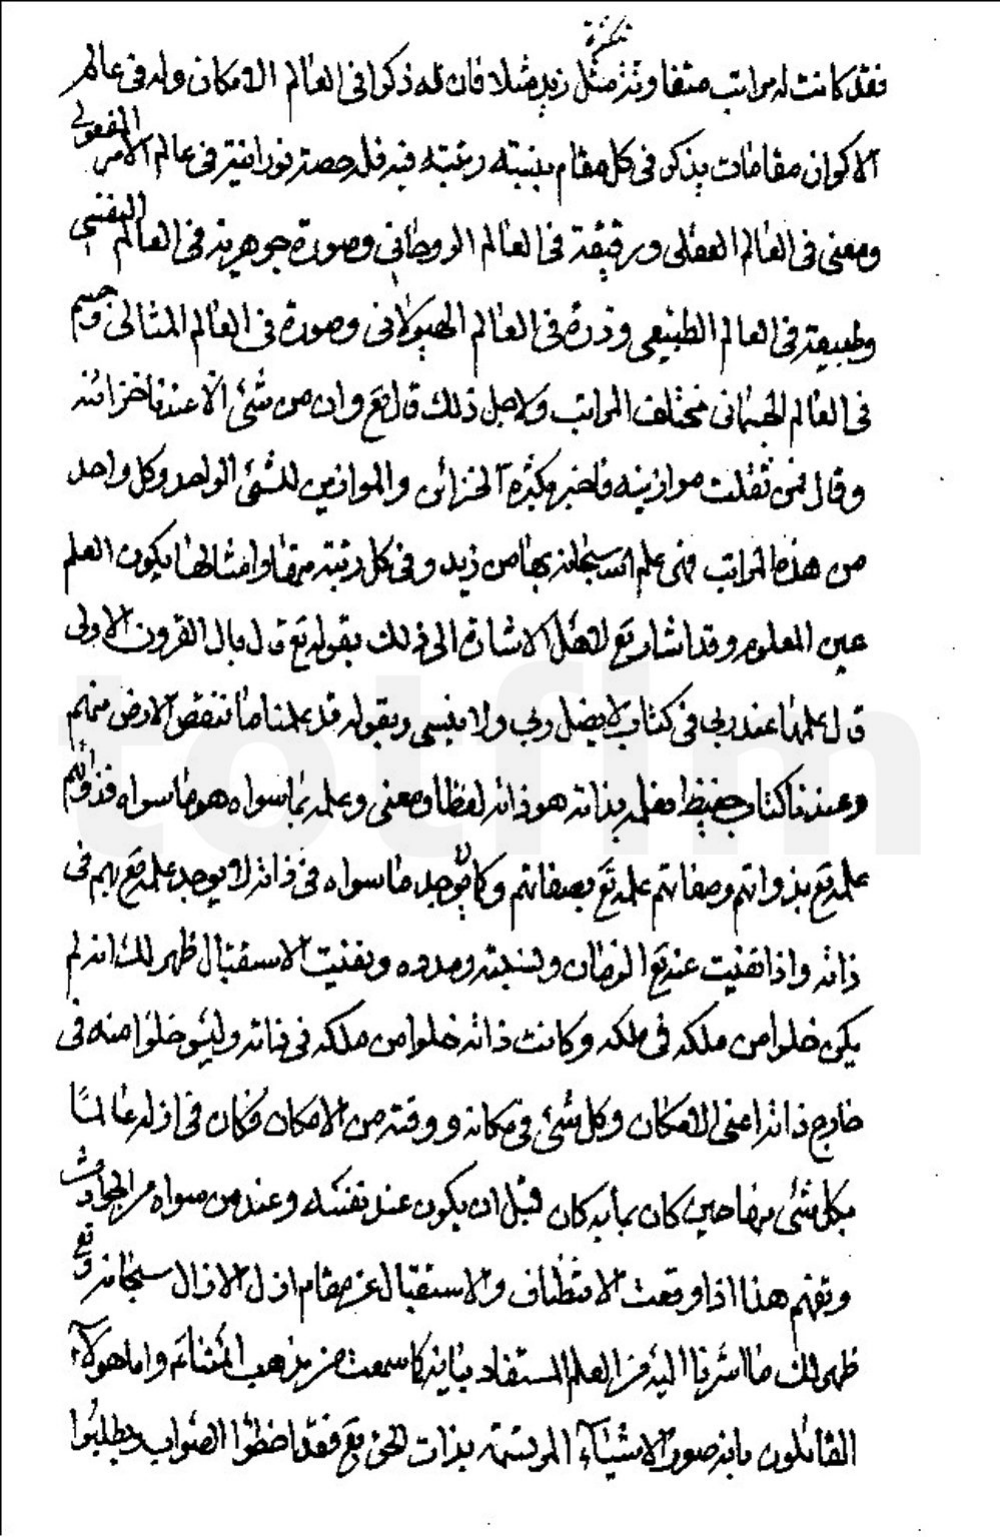 كثيرة
فقد كانت له مراتب متفاوتة مثل زيد مثلا فان له ذكرا في العالم الامكان وله في عالم
الاكوان مقامات يذكر في كل مقام بنسبته رتبته فيه فله حصة نورانية في عالم الامر المفعولي
ومعنى في العالم العقلي ورقيقة في العالم الروحاني وصورة جوهرية في العالم النفسي
وطبيعة في العالم الطبيعي وذرة في العالم الهيولاني وصورة في العالم المثالي وجسم
في العالم الجسماني مختلف المراتب ولاجل ذلك قال تع وان من شئ الا عندنا خزائنه
وقال فمن ثقلت موازينه فاخبر بكثرة الخزائن والموازين للشئ الواحد وكل واحد
من هذه المراتب فهي علم الله سبحانه بها من زيد وفي كل رتبة منها وامثالها يكون العلم
عين المعلوم وقد اشار تع لاهل الاشارة الى ذلك بقوله تع قال فما بال القرون الاولى
قال علمها عند ربي في كتاب لا يضل ربي ولا ينسى وبقوله قد علمنا ما تنقص الارض منهم
وعندنا كتاب حفيظ فعلمه بذاته هو ذاته لفظا ومعنى وعلمه بما سواه هو ما سواه فذواتهم
علمه تع بذواتهم وصفاتهم علمه تع بصفاتهم وكما لا يوجد ما سواه في ذاته لا يوجد علمه تع بهم في
ذاته واذا نفيت عنه تع الزمان ونسبته ومدده ونفيت الاستقبال ظهر لك انه لم
يكن خلوا من ملكه في ملكه وكانت ذاته خلوا من ملكه في ذاته وليس خلوا منه في
خارج ذاته اعني الامكان وكل شئ في مكانه ووقته من الامكان فكان في ازله عالما
بكل شئ منها حين كان بما به كان قبل ان يكون عند نفسه وعند من سواه من الحوادث
وتفهم هذا اذا رفعت الانتظار والاستقبال عن مقام ازل الازال سبحانه وتع
ظهر لك ما اشرنا اليه من العلم المستفاد بيانه كما سمعت من مذهب ائمتنا ع واما هؤلاء
القائلون بانه صور الاشياء المرتسمة بذات الحق تع فقد اخطؤا الصواب